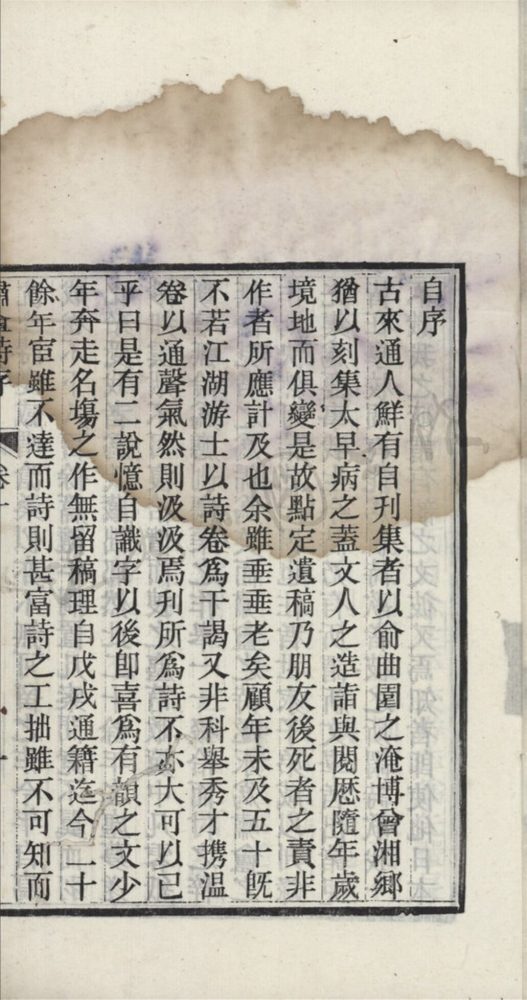 自序
古來通人鮮有自刊集者以俞曲園之淹博曾湘鄉
猶以刻集太早病之蓋文人之造詣與閱歷隨年歲
境地而俱變是故點定遺稿乃朋友後死者之責非
作者所應計及也余雖垂垂老矣顧年未及五十旣
不若江湖游士以詩卷爲干謁又非科舉秀才携溫
卷以通聲氣然則汲汲焉刊所爲詩不亦大可以已
乎曰是有二說憶自識字以後卽喜爲有韻之文少
年奔走名塲之作無留稿理自戊戌通籍迄今二十
餘年宦雖不達而詩則甚富詩之工拙雖不可知而
詩序 卷一 一